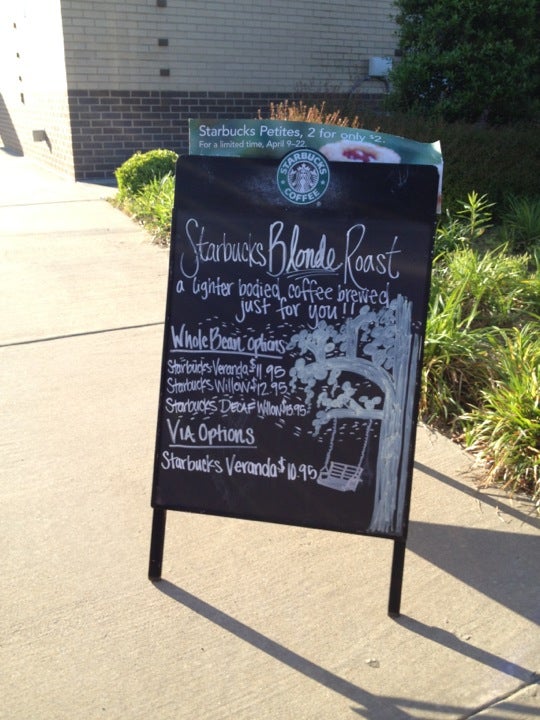 Starbucks Petites, 2 for only $2.
For a limited time, April 9-22.
STARBUCKS
COFFEE
Starbucks Blonde Roast
a lighter bodied coffee brewed
just for you!!
Whole Bean options
Starbucks Veranda $11.95
Starbucks Willow $12.95
Starbucks Decaf Willow $13.95
VIA Options
Starbucks Veranda $10.95